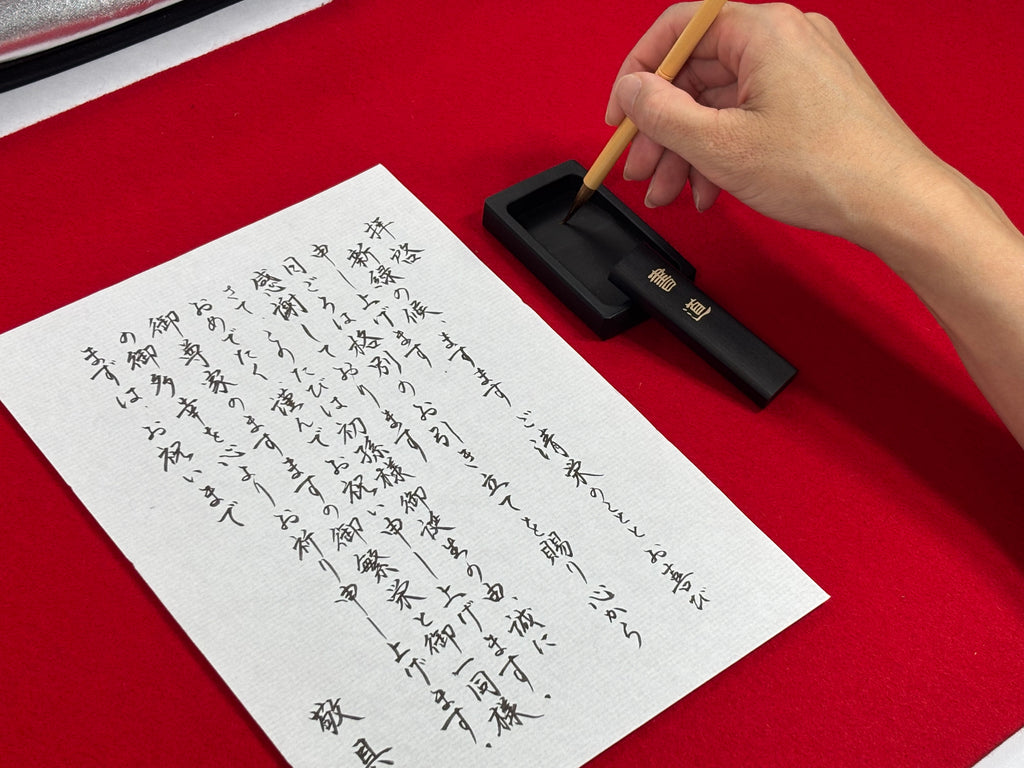 拝啓
新緑の候 ますますご清栄のこととお喜び
申し上げます.
日ごろは格別のお引き立てを賜り心から
感謝しております
さて、このたびは初孫様御誕生の由、誠に
おめでたく 謹んでお祝い申し上げます.
御尊家のますますの御繁栄と御一同様
の御多幸を心よりお祈り申し上げます.
まずは、お祝いまで
敬具
書道